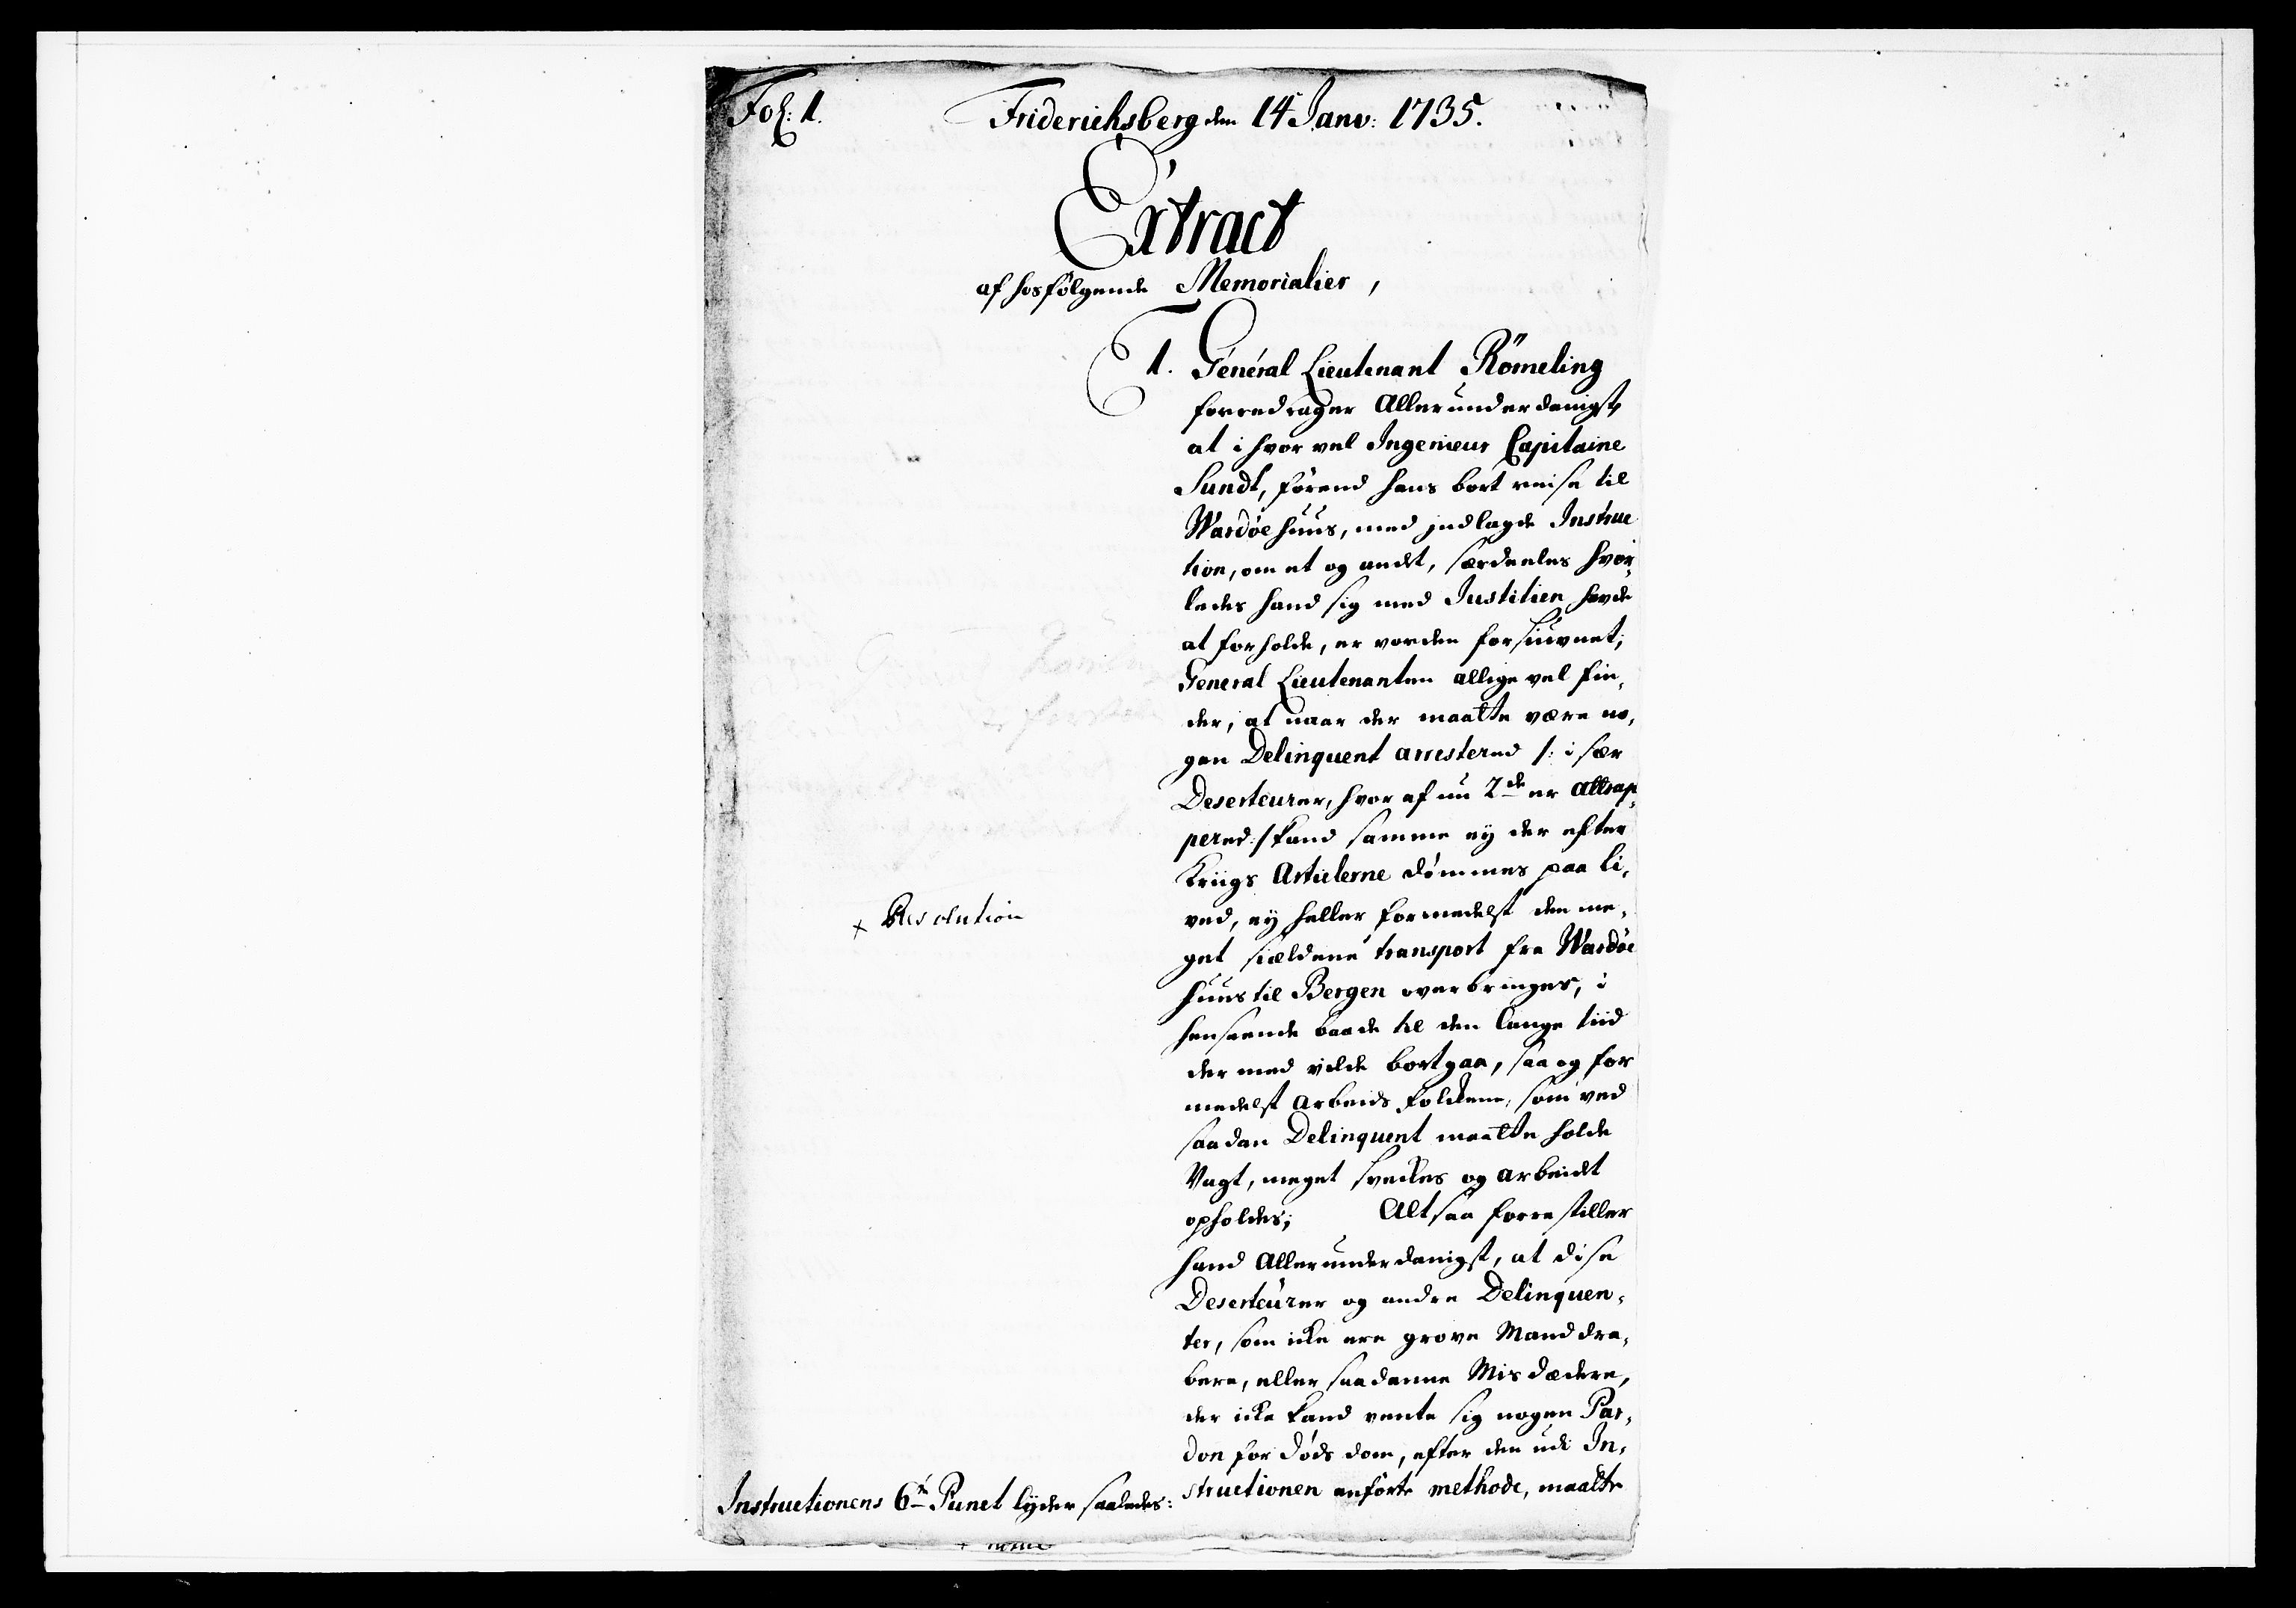 Fol: 1.
Friderichsberg den 14 Janv: 1735.
Extract
af hosfølgende Memorialier,
1. General Lieutenant Römeling
forredrager Allerunderdanigst,
at ihvorvel Ingenieur Capitaine
Sundt, førend hans bortreise til
Wardøehuus, med jndlagde Instruc
tion, om et og andt, særdeeles hvor,
ledes hand sig med Justitien hafde
at forholde, er vorden forsiuvnet;
General Lieutenanten alligevel fin,
der, at naar der maatte være no,
gen Delinquent arrestered /: i sær
Deserteurer, hvoraf nu 2de er attrap,
pered :/ kand samme ey der efter
Kriigs Articlerne dømmes paa li,
ved, ey heller formedelst den me,
get siældene transport fra Wardøe
huus til Bergen overbringes, i
henseende baade til den lange tiid
der med vilde bortgaa, saa og for
medelst Arbeids folckene, som ved
saadan Delinquent maatte holde
Vagt, meget sveckes og arbeidet
opholdes; Altsaa forrestiller
hand Allerunderdanigst, at disse
Deserteurer og andre Delinquen,
ter, som icke ere grove Manddra,
bere, eller saadanne Misdædere,
der icke kand vente sig nogen Par,
don for Døds dom, efter den udi In,
structionen anførte methode, maatte
x Resolution
Instructionens 6te Punct lyder saaledes: